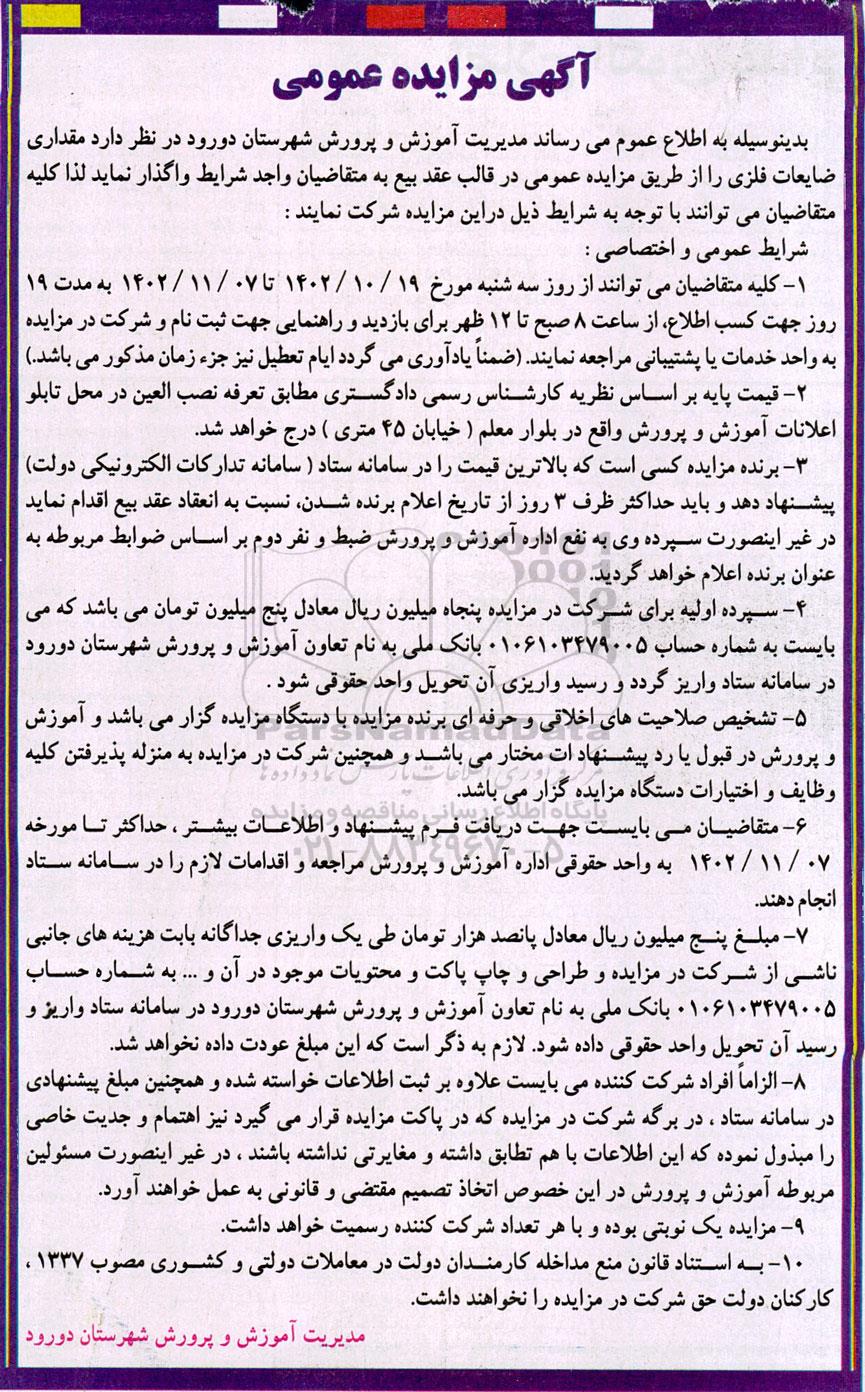 آگهی مزایده عمومی
بدینوسیله به اطلاع عموم می رساند مدیریت آموزش و پرورش شهرستان دورود در نظر دارد مقداری
ضایعات فلزی را از طریق مزایده عمومی در قالب عقد بیع به متقاضیان واجد شرایط واگذار نماید لذا کلیه
متقاضیان می توانند با توجه به شرایط ذیل دراین مزایده شرکت نمایند :
شرایط عمومی و اختصاصی :
۱- کلیه متقاضیان می توانند از روز سه شنبه مورخ ۱۹ / ۱۰ / ۱۴۰۲ تا ۰۷ / ۱۱ / ۱۴۰۲ به مدت ۱۹
روز جهت کسب اطلاع، از ساعت ۸ صبح تا ۱۲ ظهر برای بازدید و راهنمایی جهت ثبت نام و شرکت در مزایده
به واحد خدمات یا پشتیبانی مراجعه نمایند. (ضمناً یادآوری می گردد ایام تعطیل نیز جزء زمان مذکور می باشد.)
۲- قیمت پایه بر اساس نظریه کارشناس رسمی دادگستری مطابق تعرفه نصب العین در محل تابلو
اعلانات آموزش و پرورش واقع در بلوار معلم ( خیابان ۴۵ متری ) درج خواهد شد.
۳- برنده مزایده کسی است که بالاترین قیمت را در سامانه ستاد ( سامانه تدارکات الکترونیکی دولت)
پیشنهاد دهد و باید حداکثر ظرف ۳ روز از تاریخ اعلام برنده شدن، نسبت به انعقاد عقد بیع اقدام نماید
در غیر اینصورت سپرده وی به نفع اداره آموزش و پرورش ضبط و نفر دوم بر اساس ضوابط مربوطه به
عنوان برنده اعلام خواهد گردید.
۴- سپرده اولیه برای شرکت در مزایده پنجاه میلیون ریال معادل پنج میلیون تومان می باشد که می
بایست به شماره حساب ۰۱۰۶۱۰۳۴۷۹۰۰۵ بانک ملی به نام تعاون آموزش و پرورش شهرستان دورود
در سامانه ستاد واریز گردد و رسید واریزی آن تحویل واحد حقوقی شود .
۵- تشخیص صلاحیت های اخلاقی و حرفه ای برنده مزایده با دستگاه مزایده گزار می باشد و آموزش
و پرورش در قبول یا رد پیشنهاد ات مختار می باشد و همچنین شرکت در مزایده به منزله پذیرفتن کلیه
وظایف و اختیارات دستگاه مزایده گزار می باشد.
۶- متقاضیان می بایست جهت دریافت فرم پیشنهاد و اطلاعات بیشتر ، حداکثر تا مورخه
۰۷ / ۱۱ / ۱۴۰۲ به واحد حقوقی اداره آموزش و پرورش مراجعه و اقدامات لازم را در سامانه ستاد
انجام دهند.
۷- مبلغ پنج میلیون ریال معادل پانصد هزار تومان طی یک واریزی جداگانه بابت هزینه های جانبی
ناشی از شرکت در مزایده و طراحی و چاپ پاکت و محتویات موجود در آن و ... به شماره حساب
۰۱۰۶۱۰۳۴۷۹۰۰۵ بانک ملی به نام تعاون آموزش و پرورش شهرستان دورود در سامانه ستاد واریز و
رسید آن تحویل واحد حقوقی داده شود. لازم به ذگر است که این مبلغ عودت داده نخواهد شد.
۸- الزاماً افراد شرکت کننده می بایست علاوه بر ثبت اطلاعات خواسته شده و همچنین مبلغ پیشنهادی
در سامانه ستاد ، در برگه شرکت در مزایده که در پاکت مزایده قرار می گیرد نیز اهتمام و جدیت خاصی
را مبذول نموده که این اطلاعات با هم تطابق داشته و مغایرتی نداشته باشند ، در غیر اینصورت مسئولین
مربوطه آموزش و پرورش در این خصوص اتخاذ تصمیم مقتضی و قانونی به عمل خواهند آورد.
۹- مزایده یک نوبتی بوده و با هر تعداد شرکت کننده رسمیت خواهد داشت.
۱۰- به استناد قانون منع مداخله کارمندان دولت در معاملات دولتی و کشوری مصوب ۱۳۳۷ ،
کارکنان دولت حق شرکت در مزایده را نخواهند داشت.
مدیریت آموزش و پرورش شهرستان دورود
ParsNamadData
پایگاه اطلاع رسانی مناقصه و مزایده
۰۲۱-۸۸۳۴۹۶۷۰-۵